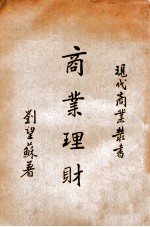 現代商業叢書
商業理財
劉望蘇著